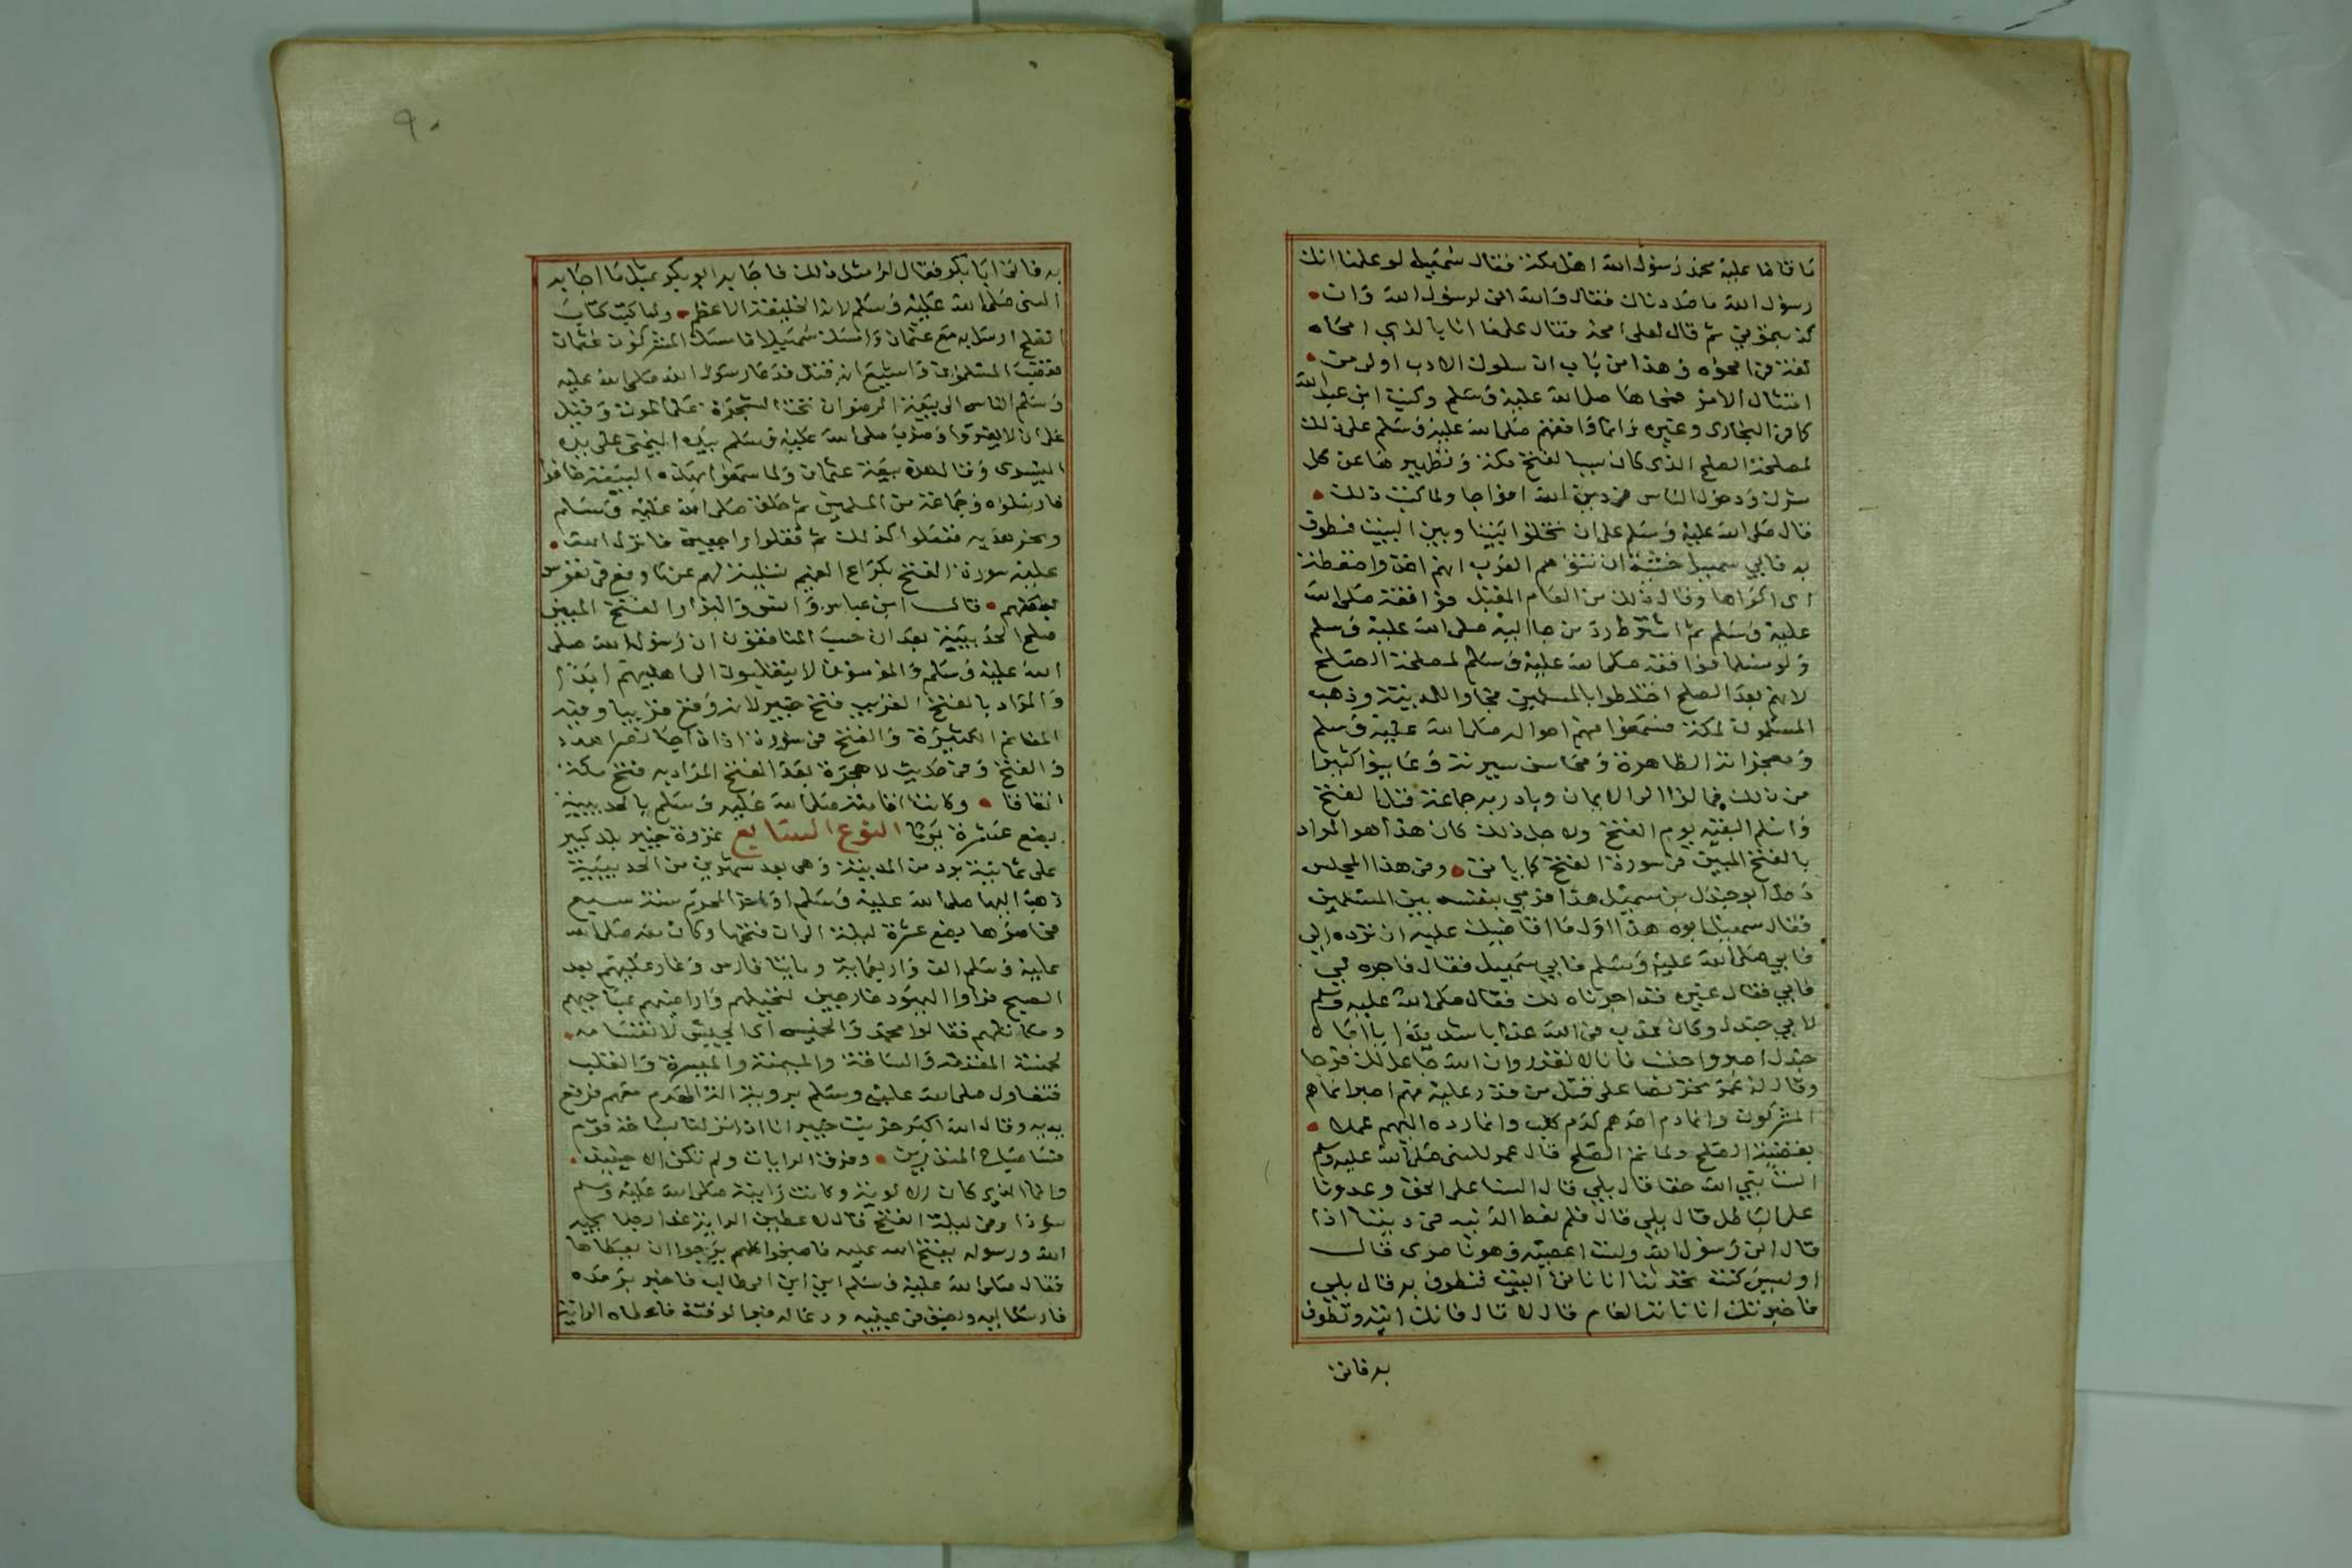 ما قاضا عليه محمد رسول الله اهل مكة فقال سهيل لو علمنا انك
رسول الله ما صددناك فقال والله انى لرسول الله وان
كذبتمونى ثم قال لعلى امحه فقال على ما انا بالذي امحاه
لغة فى امحوه وهذا من باب ان سلوك الادب اولى من
امتثال الامر فمحاها صلى الله عليه وسلم وكتب ابن عبد الله
كما فى البخارى وغيره وانما وافقهم صلى الله عليه وسلم على ذلك
لمصلحة الصلح الذى كان سببا لفتح مكة وتطهيرها عن كل
شرك ودخول الناس فى دين الله افواجا ولما كتب ذلك
قال صلى الله عليه وسلم على ان تخلوا بيننا وبين البيت فنطوف
به فابى سهيل خشية ان تتحدث العرب انهم اخذوا ضغطة
اى اكراها وقال ذلك من العام المقبل فوافقه صلى الله
عليه وسلم ثم اشترط رد من جا اليه صلى الله عليه وسلم
ولو مسلما فوافقه صلى الله عليه وسلم لمصلحة الصلح
لانهم بعد الصلح اختلطوا بالمسلمين فجاوا للمدينة وذهب
المسلمون لمكة فسمعوا منهم احواله صلى الله عليه وسلم
ومعجزاته الظاهرة ومحاسن سيرته وعاينوا كثيرا
من ذلك فمالوا الى الايمان وبادر به جماعة قبل الفتح
واسلم البقية يوم الفتح ولاجل ذلك كان هذا هو المراد
بالفتح المبين فى سورة الفتح كما ياتى وفى هذا المجلس
دخل ابو جندل بن سهيل هذا فرمى بنفسه بين المسلمين
فقال سهيل ابوه هذا اول ما اقاضيك عليه ان ترده الي
فابى صلى الله عليه وسلم فابي سهيل فقال فاجره لي
فابي فقال غيره قد اجرناه لك فقال صلى الله عليه وسلم
لابي جندل وكان عذب فى الله عذابا شديدا يا ابا
جندل اصبر واحتسب فانا لا نغدر وان الله جاعل لك فرجا
وقال له عمر تحريضا على قتل من قدر عليه منهم اصبر انما هم
المشركون وانما دم احدهم كدم كلب وانما رده اليهم عملا
بقضية الصلح ولما تم الصلح قال عمر للنبى صلى الله عليه وسلم
الست نبي الله حقا قال بلي قال السنا على الحق وعدونا
على الباطل قال بلي قال فلم نعط الدنيه فى ديننا اذا
قال انى رسول الله ولست اعصيه وهو ناصرى قال
اوليس كنت تحدثنا انا ناتى البيت فنطوف به قال بلي
فاخبرتك انا ناته العام قال لا قال فانك اتيه وتطوف
به فاتى
٩٠
به فاتى ابا بكر فقال له مثل ذلك فاجابه ابو بكر بمثل ما اجابه
النبى صلى الله عليه وسلم لانه الخليفة الاعظم ولما كتب كتاب
الصلح ارسل به مع عثمان وامسك سهيلا فامسك المشركون عثمان
فغضب المسلمون واشيع انه قتل فدعا رسول الله صلى الله عليه
وسلم الناس الى بيعة الرضوان تحت الشجرة على الموت وقيل
على ان لا يفروا وضرب صلى الله عليه وسلم بيده اليمنى على يده
اليسرى وقال هذه بيعة عثمان ولما سمعوا بهذه البيعة خافوا
فارسلوه وجماعة من المسلمين ثم حلق صلى الله عليه وسلم
ونحر هديه ففعلوا كذلك ثم قفلوا راجعين فانزل الله
عليه سورة الفتح بكراع الغميم تسلية لهم عن ما وقع فى نفوس
بعضهم قال ابن عباس وانس والبرا الفتح المبين
صلح الحديبية بعد ان حسب المنافقون ان رسول الله صلى
الله عليه وسلم والمؤمنون لا ينقلبون الى اهليهم ابدا
والمراد بالفتح القريب فتح خيبر لانه وقع قريبا وفيه
المغانم الكثيرة والفتح فى سورة اذا جا نصر الله
والفتح وفى حديث لا هجرة بعد الفتح المراد به فتح مكة
اتفاقا وكانت اقامته صلى الله عليه وسلم بالحديبية
بضع عشرة يوما النوع السابع غزوة خيبر بلد كبير
على ثمانية برد من المدينة وهى بعد شهرين من الحديبية
ذهب اليها صلى الله عليه وسلم اواخر المحرم سنة سبع
فحاصرها بضع عشرة ليلة الى ان فتحها وكان معه صلى الله
عليه وسلم الف واربعماية ومايتا فارس وغار عليهم بعد
الصبح فراوا اليهود خارجين لنخيلهم واراضيهم بمساحيهم
ومكاتلهم فقالوا محمد والخميس اى الجيش لانقسامه
لخمسة المقدمة والساقة والميمنة والميسرة والقلب
فتفاول صلى الله عليه وسلم بروية الة الهدم معهم فرفع
يديه وقال الله اكبر خربت خيبر انا اذا نزلنا بساحة قوم
فسا صباح المنذرين وفرق الرايات ولم تكن الا حينئذ
وانما الذى كان الالوية وكانت رايته صلى الله عليه وسلم
سودا وفى ليلة الفتح قال لاعطين الراية غدا رجلا يحبه
الله ورسوله يفتح الله عليه فاصبحوا كلهم يرجوا ان يعطاها
فقال صلى الله عليه وسلم اين ابن ابى طالب فاخبر برمده
فارسل اليه وبصق فى عينيه ودعا له فبرا لوقته فاعطاه الراية